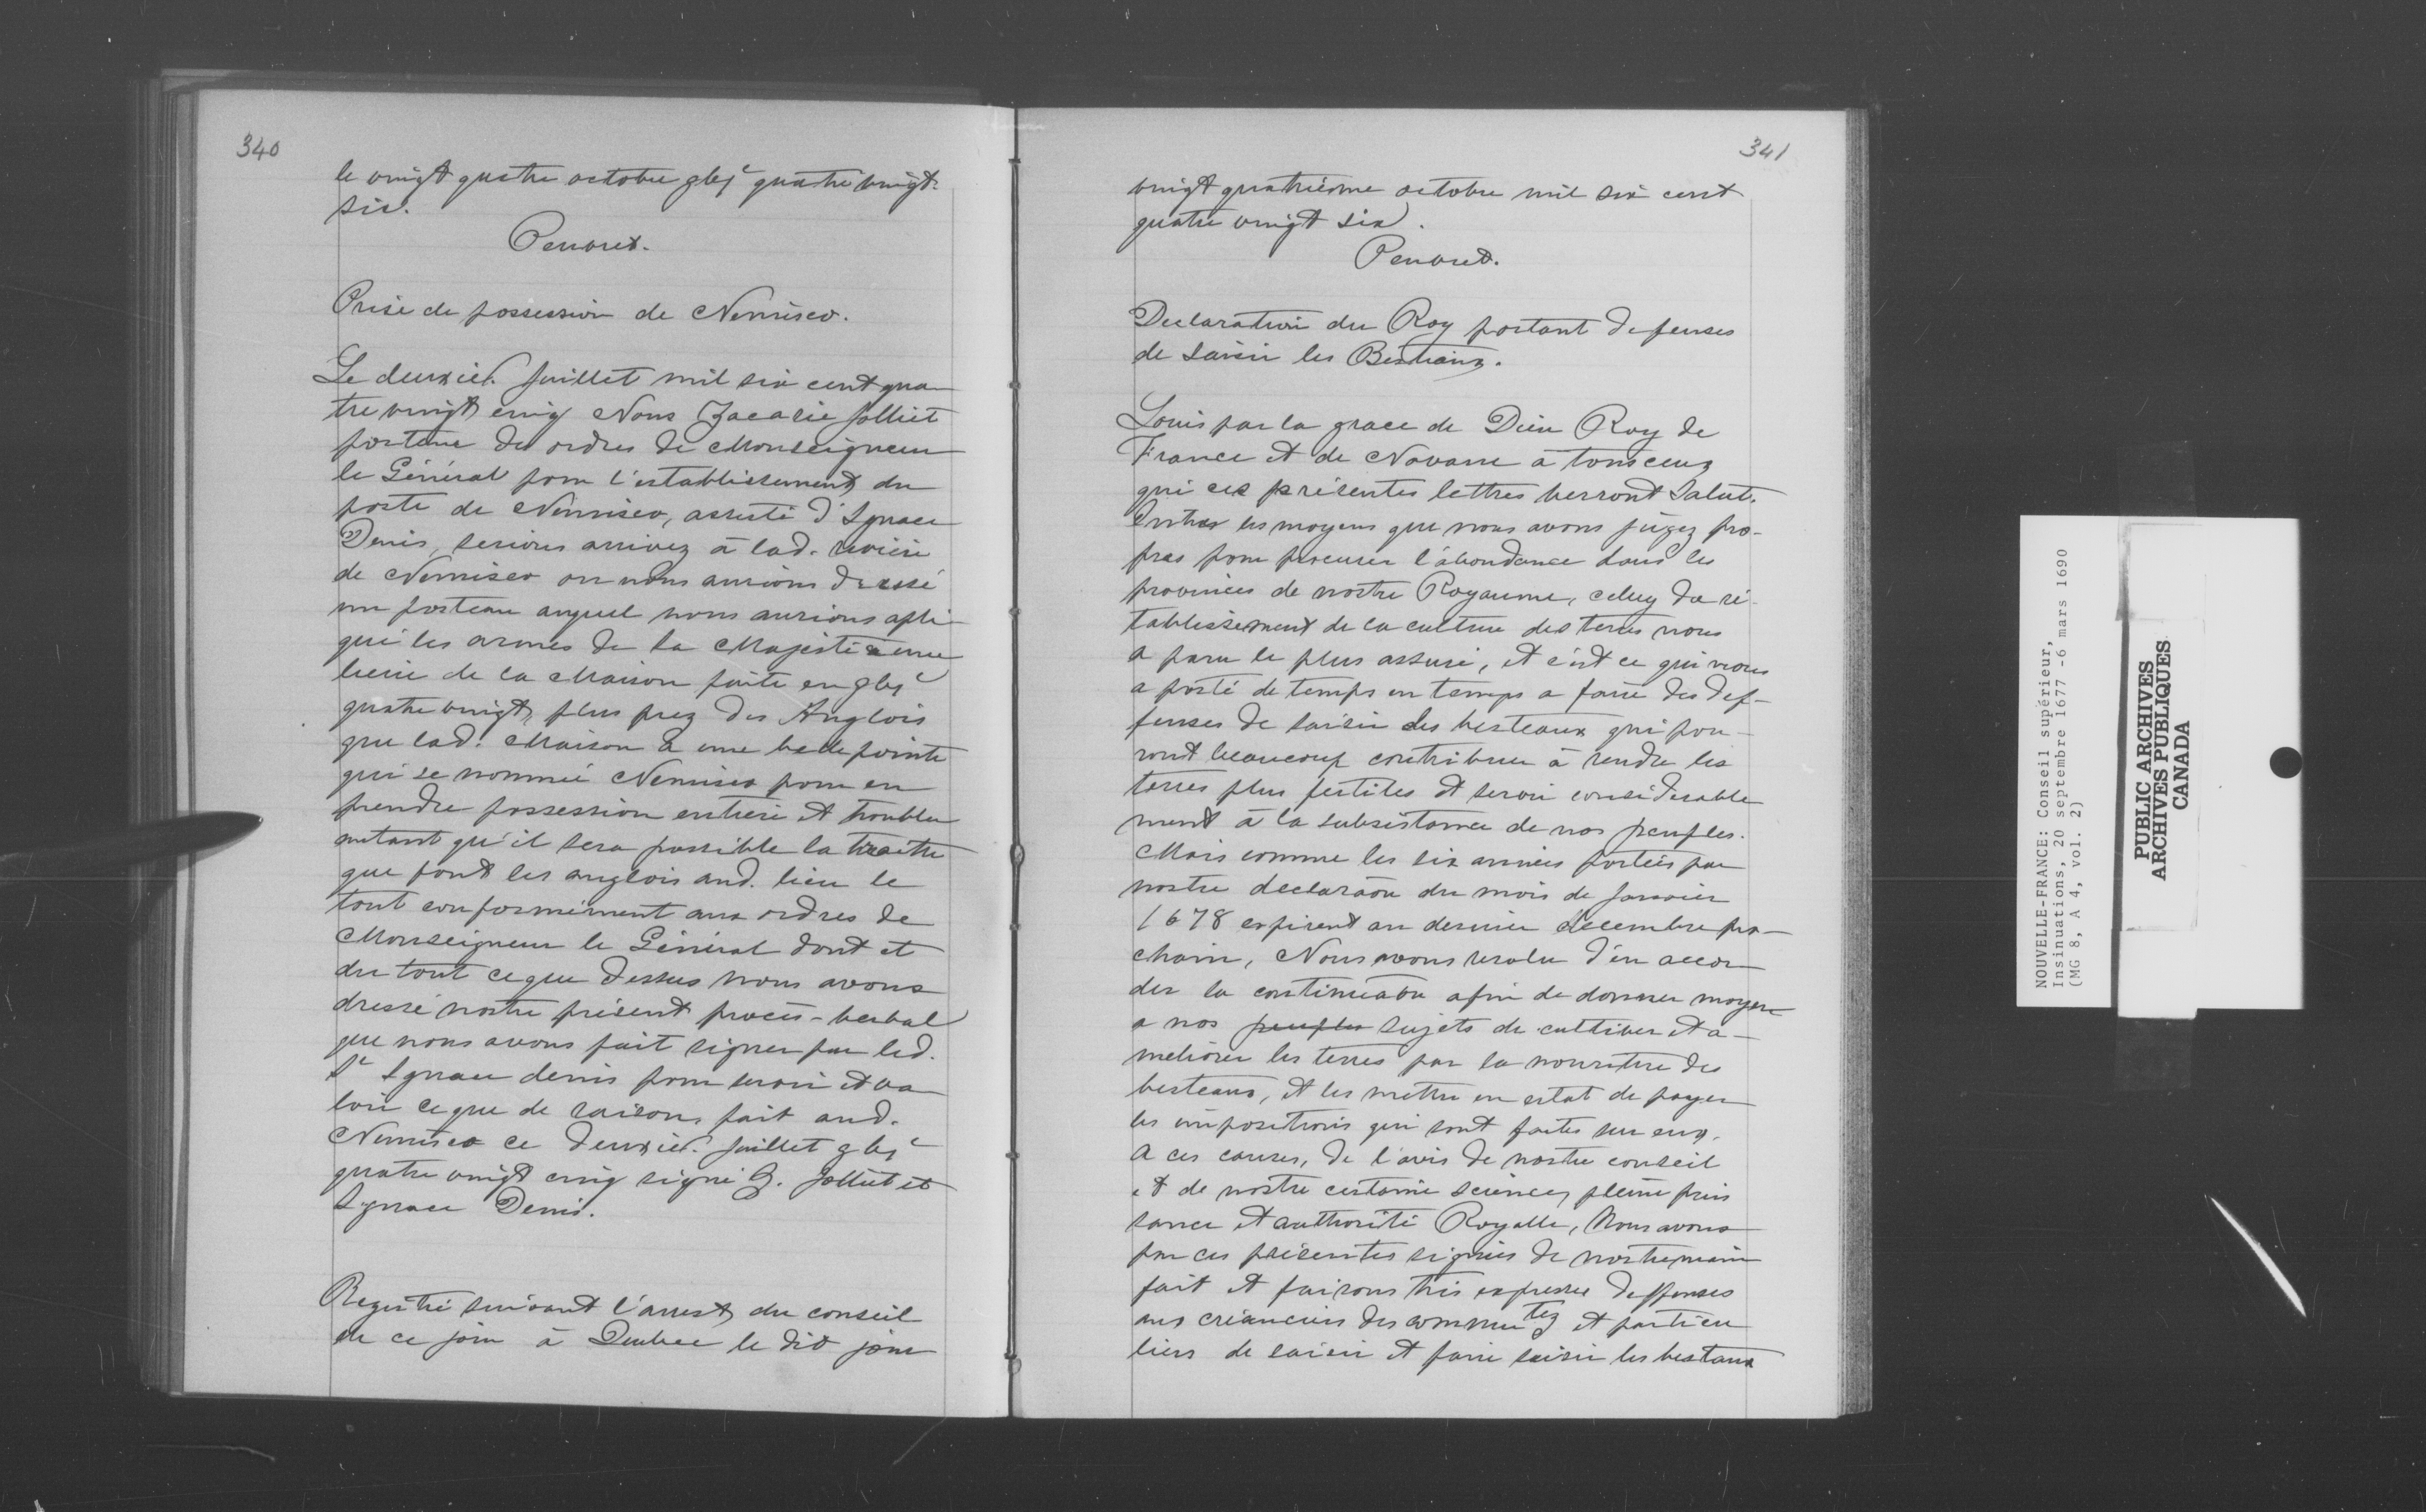 340
le vingt quatre octobre gbjc quatre vingt
six.
Penuret.
Prise de possession de Nemisco.
Le deuxied. Juillet mil six cent qua
tre vingt cinq Nous Zacarie Jolliet
porteur des ordres de Monseigneur
le Général pour l'establissement du
poste de Nemisco, assisté d'Ignace
Denis, serions arrivez à lad. riviere
de Nemisco ou nous aurions dressé
un posteau auquel nous aurions apli
qué les armes de sa Majesté a une
lieue de la Maison faite en gbjc
quatre vingt, plus prez des Anglois
que lad. Maison à une belle pointe
qui se nommé Nemisco pour en
prendre possession entiere et troubler
autant qu'il sera possible la traitte
que font les anglois aud. lieu le
tout conformément aux ordres de
Monseigneur le Général dont et
du tout ce que dessus nous avons
dressé nostre présent procès-verbal
que nous avons fait signer par led.
Sr Ignace denis pour servir et va
loir ce que de raison, fait aud.
Nemisco ce deuxied. Juillet gbjc
quatre vingt cinq signé Z. Jolliet et
Ignace Denis.
Registré suivant l'arrest du conseil
de ce jour à Quebec le dit jour
341
vingt quatrième octobre mil six cent
quatre vingt six.
Penuret.
Declaration du Roy portant defenses
de saisir les Bestiaux.
Louis par la grace de Dieu Roy de
France et de Navarre a tous ceux
qui ces présentes lettres verront Salut.
Entres les moyens que nous avons jugez pro-
pres pour procurer l'abondance dans les
provinces de nostre Royaume, celuy du ré-
tablissement de la culture des terres nous
a paru le plus assuré, et c'est ce qui nous
a porté de temps en temps a faire des def-
fenses de saisir les besteaux qui pou-
ront beaucoup contribuer à rendre les
terres plus fertiles et servir considerable
ment à la subsistance de nos peuples.
Mais comme les six années portées par
nostre declaraon du mois de Janvier
1678 expirent au dernier decembre pro-
chain, Nous avons resolu d'en accor
der la continuaon afin de donner moyen
a nos peuples sujets de cultiver et a-
meliorer les terres par la nouriture des
besteaux, et les mettre en estat de payer
les impositions qui sont faites sur eux.
A ces causes, de l'avis de nostre conseil
et de nostre certaine science, pleine puis
sance et authorité Royalle, Nous avons
par ces présentes signées de nostre main
fait et faisons très expresse deffenses
aux créanciers des commutez et particu
liers de saisir et faire saisir les bestaux
NOUVELLE-FRANCE: Conseil supérieur,
Insinuations, 20 septembre 1677 -6 mars 1690
(MG 8, A 4, vol. 2)
PUBLIC ARCHIVES
ARCHIVES PUBLIQUES
CANADA